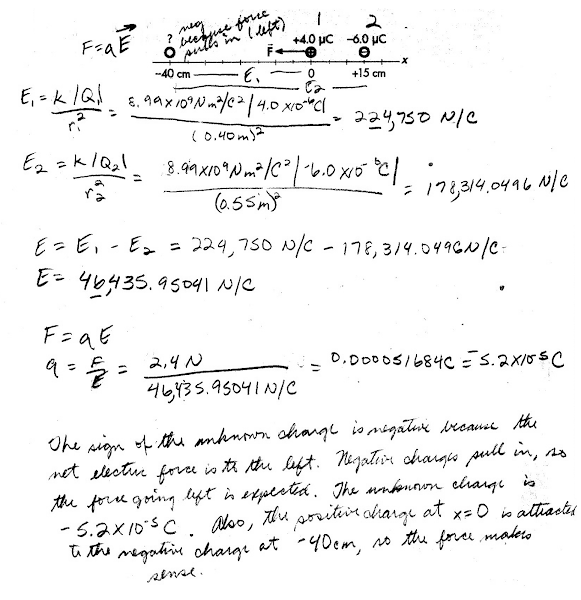 neg
because force
pulls in (left)
1 2
F=qE
?
F +4.0 µC -6.0 µC
x
-40 cm E₁ 0 +15 cm
E₂
E₁ = k|Q₁| / r₁² = 8.99x10⁹Nm²/C²|4.0x10⁻⁶C| / (0.40m)² = 224,750 N/C
E₂ = k|Q₂| / r₂² = 8.99x10⁹Nm²/C²|-6.0x10⁻⁶C| / (0.55m)² = 178,314.0496 N/C
E = E₁ - E₂ = 224,750 N/C - 178,314.0496N/C
E = 46,435.95041 N/C
F=qE
q = F/E = 2.4 N / 46,435.95041 N/C = 0.000051684C = -5.2x10⁻⁵C
The sign of the unknown charge is negative because the
net electric force is to the left. Negative charges pull in, so
the force going left is expected. The unknown charge is
-5.2x10⁻⁵C. Also, the positive charge at x=0 is attracted
to the negative charge at -40cm, so the force makes
sense.